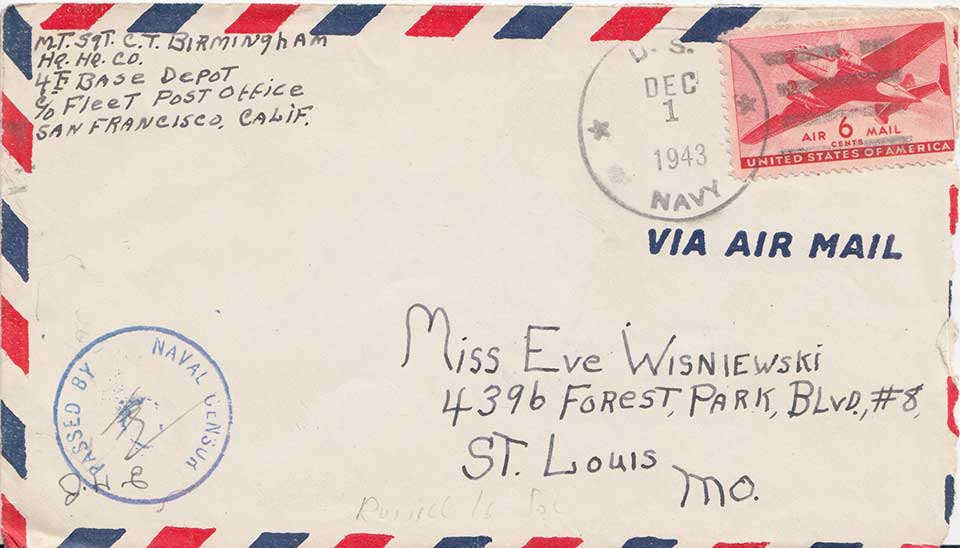 MT. SGT. C.T. BIRMINGHAM
HQ. HQ. CO.
4TH BASE DEPOT
C/O FLEET POST OFFICE
SAN FRANCISCO, CALIF.
U. S.
DEC
1
1943
NAVY
AIR 6 MAIL
CENTS
UNITED STATES OF AMERICA
VIA AIR MAIL
MISS EVE WISNIEWSKI
4396 FOREST, PARK, BLVD., #8,
ST. LOUIS
MO.
PASSED BY NAVAL CENSOR